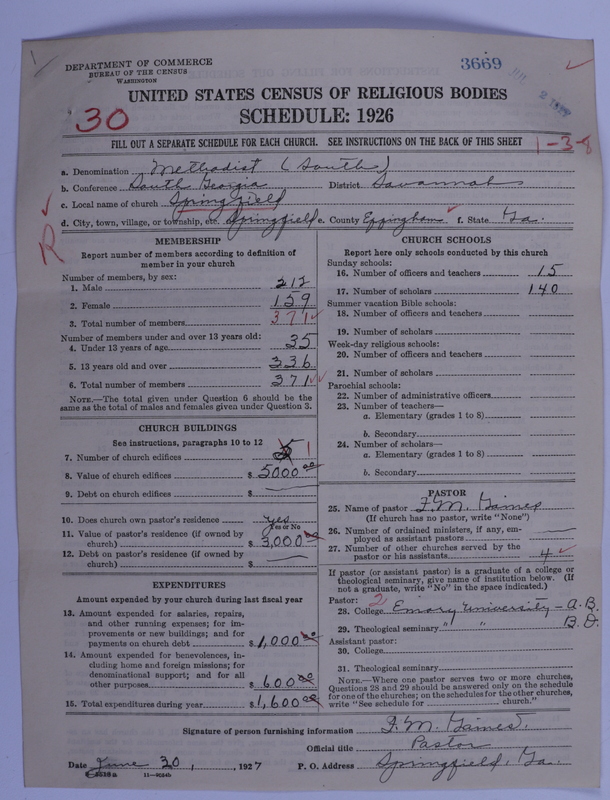 DEPARTMENT OF COMMERCE
BUREAU OF THE CENSUS
WASHINGTON
3669
UNITED STATES CENSUS OF RELIGIOUS BODIES
30
SCHEDULE: 1926
FILL OUT A SEPARATE SCHEDULE FOR EACH CHURCH. SEE INSTRUCTIONS ON THE BACK OF THIS SHEET
1-3-8
a. Denomination Methodist (South)
b. Conference South Georgia District Savannah
c. Local name of church Springfield
d. City, town, village, or township, etc. Springfield e. County Effingham f. State Ga.
R
MEMBERSHIP
Report number of members according to definition of
member in your church
Number of members, by sex:
1. Male 212
2. Female 159
3. Total number of members 371
Number of members under and over 13 years old:
4. Under 13 years of age 35
5. 13 years old and over 336
6. Total number of members 371
NOTE.—The total given under Question 6 should be the
same as the total of males and females given under Question 3.
CHURCH BUILDINGS
See instructions, paragraphs 10 to 12
7. Number of church edifices 5 1
8. Value of church edifices $ 5000.00
9. Debt on church edifices $ —
10. Does church own pastor's residence yes
Yes or No
11. Value of pastor's residence (if owned by
church) $ 3,000.00
12. Debt on pastor's residence (if owned by
church) $ —
EXPENDITURES
Amount expended by your church during last fiscal year
13. Amount expended for salaries, repairs,
and other running expenses; for im-
provements or new buildings; and for
payments on church debt $ 1,000.00
14. Amount expended for benevolences, in-
cluding home and foreign missions; for
denominational support; and for all
other purposes $ 600.00
15. Total expenditures during year $ 1,600.00
CHURCH SCHOOLS
Report here only schools conducted by this church
Sunday schools:
16. Number of officers and teachers 15
17. Number of scholars 140
Summer vacation Bible schools:
18. Number of officers and teachers
19. Number of scholars
Week-day religious schools:
20. Number of officers and teachers
21. Number of scholars
Parochial schools:
22. Number of administrative officers
23. Number of teachers—
a. Elementary (grades 1 to 8)
b. Secondary
24. Number of scholars—
a. Elementary (grades 1 to 8)
b. Secondary
PASTOR
25. Name of pastor F. M. Gaines
(If church has no pastor, write "None")
26. Number of ordained ministers, if any, em-
ployed as assistant pastors —
27. Number of other churches served by the
pastor or his assistants 4
If pastor (or assistant pastor) is a graduate of a college or
theological seminary, give name of institution below. (If
not a graduate, write "No" in the space indicated.)
Pastor: 2
28. College Emory University — A.B.
29. Theological seminary " " B.D.
Assistant pastor:
30. College
31. Theological seminary
NOTE.—Where one pastor serves two or more churches,
Questions 28 and 29 should be answered only on the schedule
for one of the churches; on the schedules for the other churches,
write "See schedule for church."
Signature of person furnishing information F. M. Gaines.
Official title Pastor
Date June 30, 1927 P. O. Address Springfield, Ga.